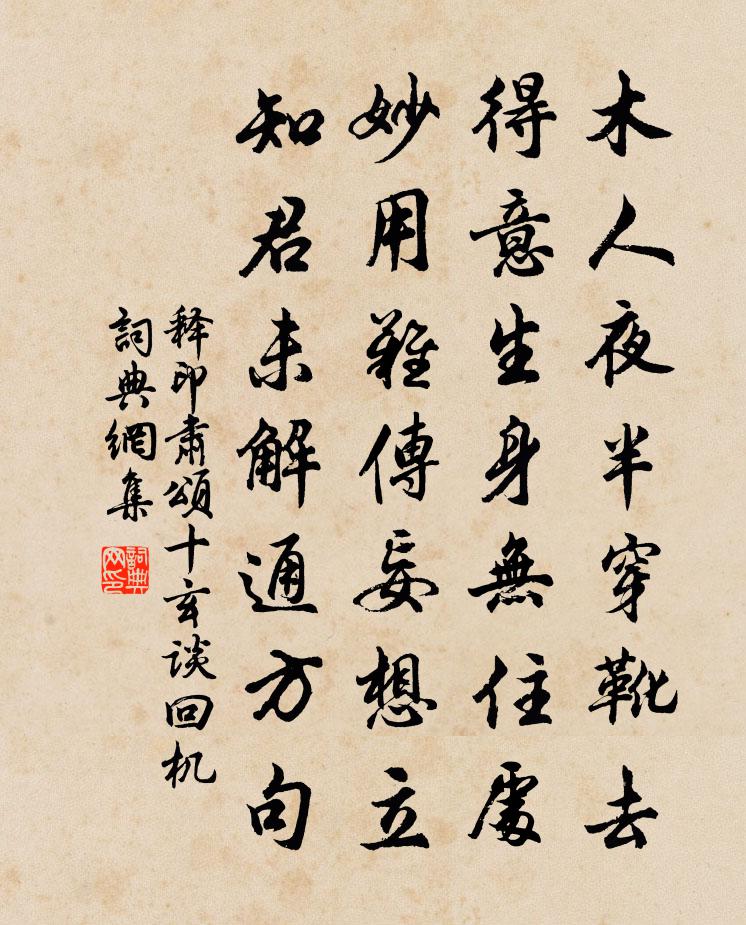 木人夜半穿靴去
得意生身無住處
妙用難傳妄想立
知君未解通方句
释印肃頌十玄談回机
詞典網集
詞典網印